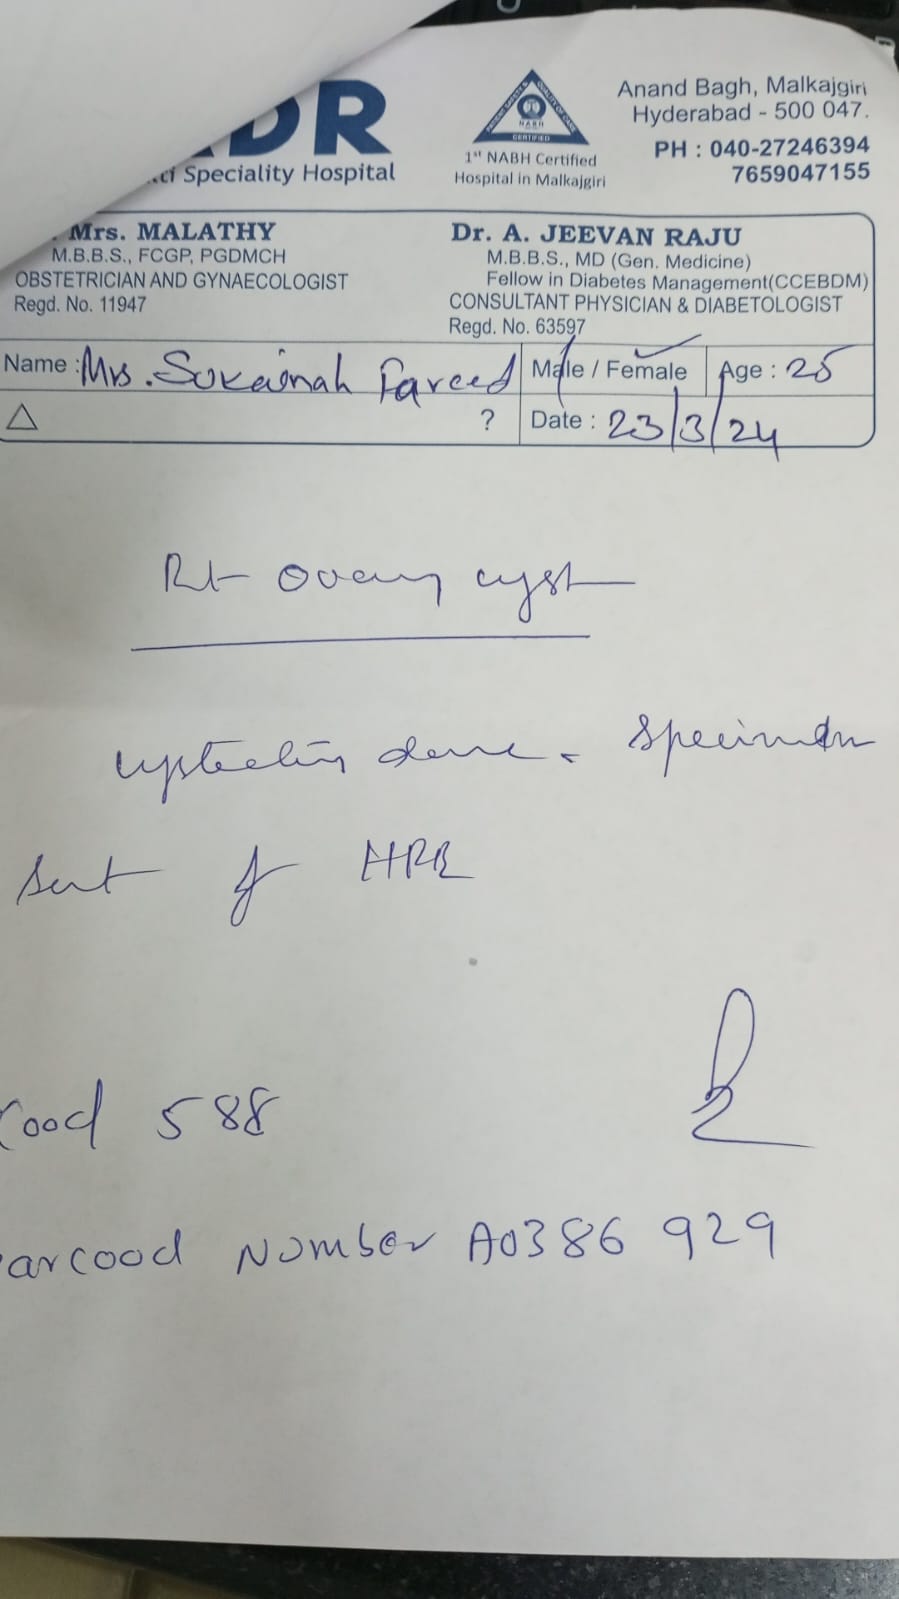 DR
Speciality Hospital
PATIENT SAFETY & QUALITY OF CARE
NABH
CERTIFIED
1st NABH Certified
Hospital in Malkajgiri
Anand Bagh, Malkajgiri
Hyderabad - 500 047.
PH : 040-27246394
7659047155
Mrs. MALATHY
M.B.B.S., FCGP, PGDMCH
OBSTETRICIAN AND GYNAECOLOGIST
Regd. No. 11947
Dr. A. JEEVAN RAJU
M.B.B.S., MD (Gen. Medicine)
Fellow in Diabetes Management(CCEBDM)
CONSULTANT PHYSICIAN & DIABETOLOGIST
Regd. No. 63597
Name : Mrs. Sukainah Fareed Male / Female Age : 25
△ ? Date : 23/3/24
Rt Ovary cyst
cystectomy done. Specimen
sent for HPE
cood 588
arcood Number A0386 929